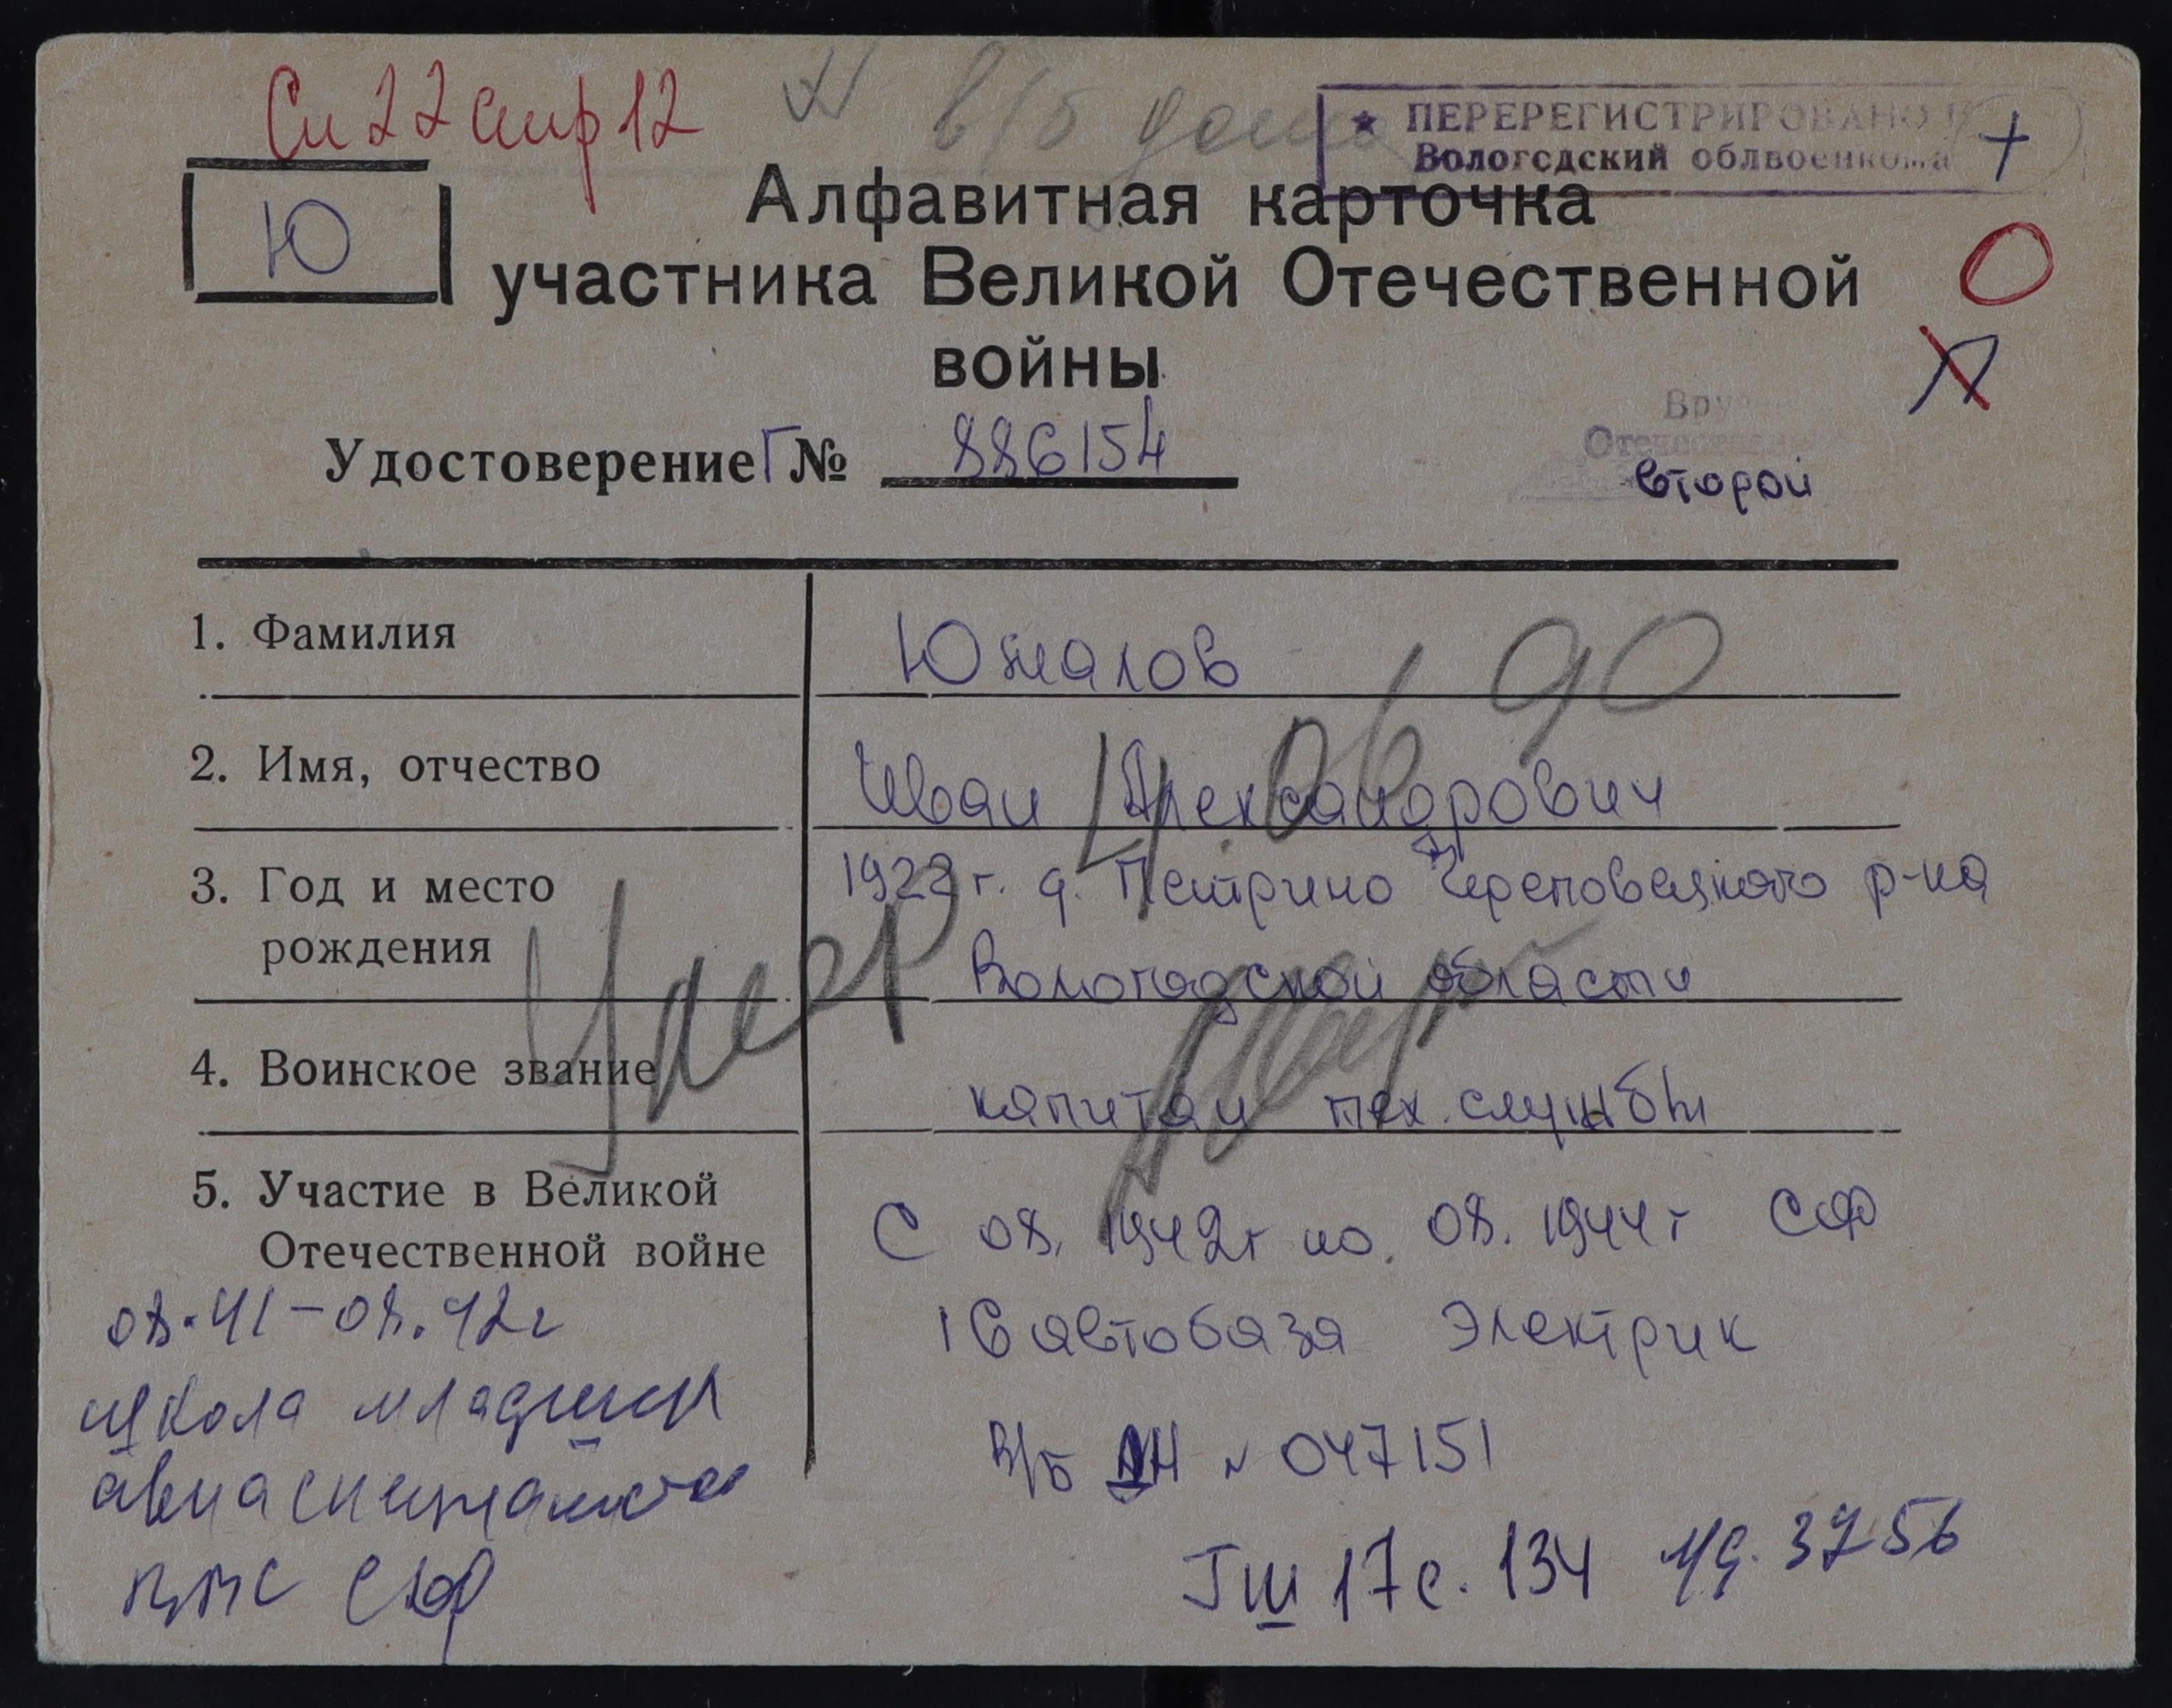 Сп 22 стр 12
в/б
★ ПЕРЕРЕГИСТРИРОВАНО
Вологодский облвоенкома
+
Ю
Алфавитная карточка
участника Великой Отечественной
войны
О
Удостоверение Г № 886154
Вру
Отечественной
второй
1. Фамилия
Юшалов
2. Имя, отчество
Иван Александрович
4.06 90
3. Год и место
рождения
1922 г. д. Петрино Череповецкого р-на
Вологодской области
Умер
4. Воинское звание
капитан тех. службы
5. Участие в Великой
Отечественной войне
С 08. 1942г по. 08. 1944г СФ
16 автобаза Электрик
В/б № 047151
08.41-08.42г
школа младших
авиаспециалистов
ВМС СФ
Тш 17 с. 134 уд. 3756